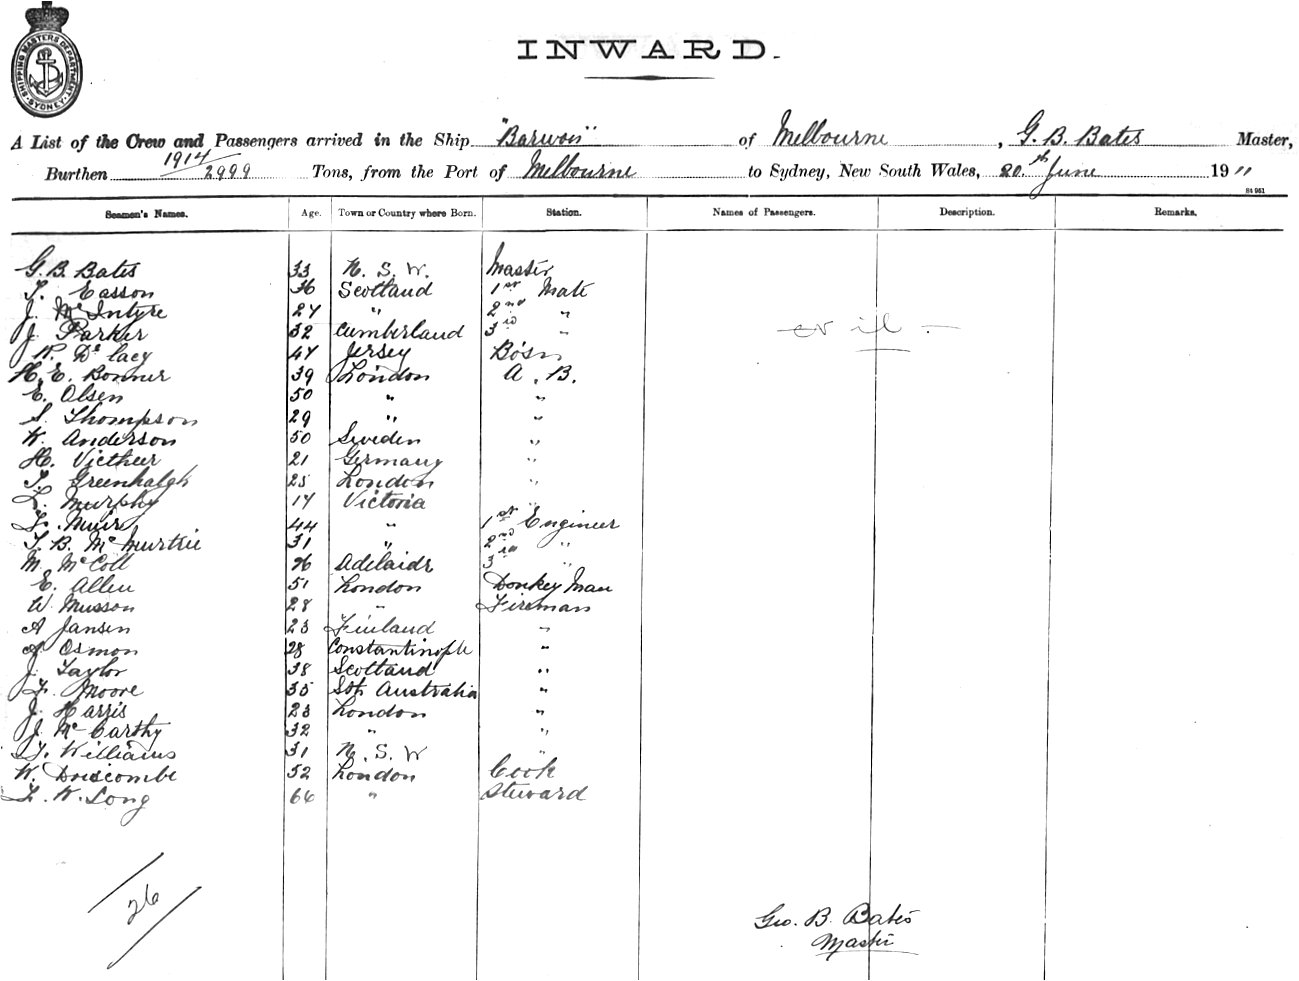 SHIPPING MASTERS DEPARTMENT
SYDNEY
INWARD.
A List of the Crew and Passengers arrived in the Ship "Barwon" of Melbourne, G. B. Bates Master,
Burthen 1914/2999 Tons, from the Port of Melbourne to Sydney, New South Wales, 20th June 1911
St 961
Seamen's Names. Age. Town or Country where Born. Station. Names of Passengers. Description. Remarks.
G. B. Bates 33 N. S. W. Master
T. Easson 36 Scotland 1st Mate
J. McIntyre 27 " 2nd "
J. Parker 32 Cumberland 3rd "
nil
De lacy 47 Jersey Bosn
H. E. Bonner 39 London A. B.
E. Olsen 50 " "
S. Thompson 29 " "
W. Anderson 50 Sweden "
H. Vietheer 21 Germany "
T. Greenhalgh 25 London "
L. Murphy 17 Victoria "
Muir 44 " 1st Engineer
T. B. McMurtrie 31 " 2nd "
M. McColl 26 Adelaide 3rd "
E. Allen 51 London Donkey Man
W. Musson 28 " Fireman
A Jansen 23 Finland "
A Osmon 28 Constantinople "
J. Taylor 38 Scotland "
Moore 35 Sth Australia "
J. Harris 23 London "
J. McCarthy 32 " "
T. Williams 31 N. S. W "
W. Driscombe 52 London Cook
W. Long 66 " Steward
26
Geo. B. Bates
Master